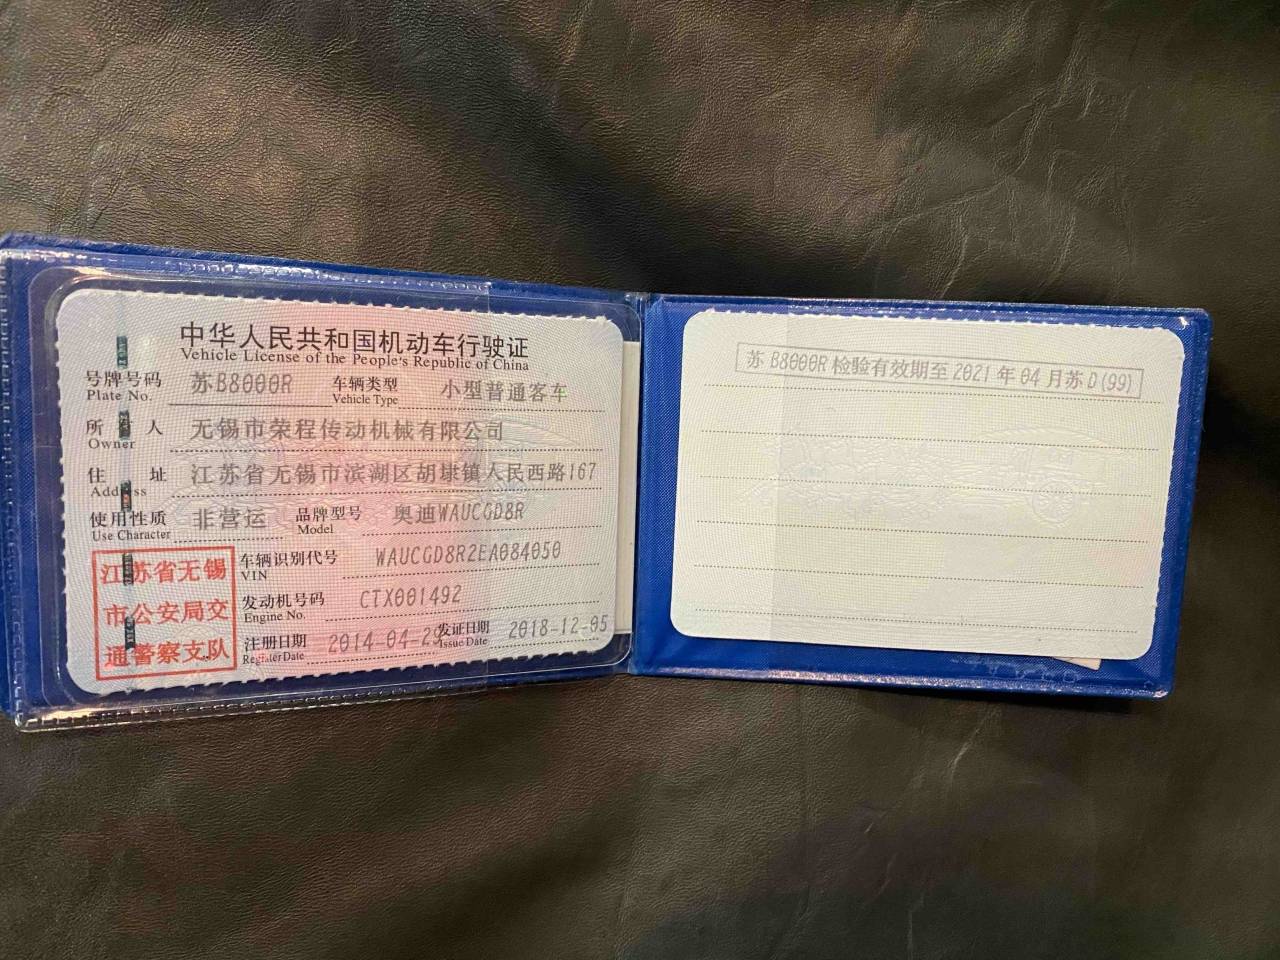 中华人民共和国机动车行驶证
Vehicle License of the People's Republic of China
号牌号码 苏B8000R 车辆类型 小型普通客车
Plate No. Vehicle Type
所 人 无锡市荣程传动机械有限公司
Owner
住 址 江苏省无锡市滨湖区胡埭镇人民西路167
Address
使用性质 非营运 品牌型号 奥迪WAUCGD8R
Use Character Model
江苏省无锡
市公安局交
通警察支队
车辆识别代号 WAUCGD8R2EA084050
VIN
发动机号码 CTX001492
Engine No.
注册日期 2014-04-29 发证日期 2018-12-05
Register Date Issue Date
苏B8000R检验有效期至2021年04月苏D(99)